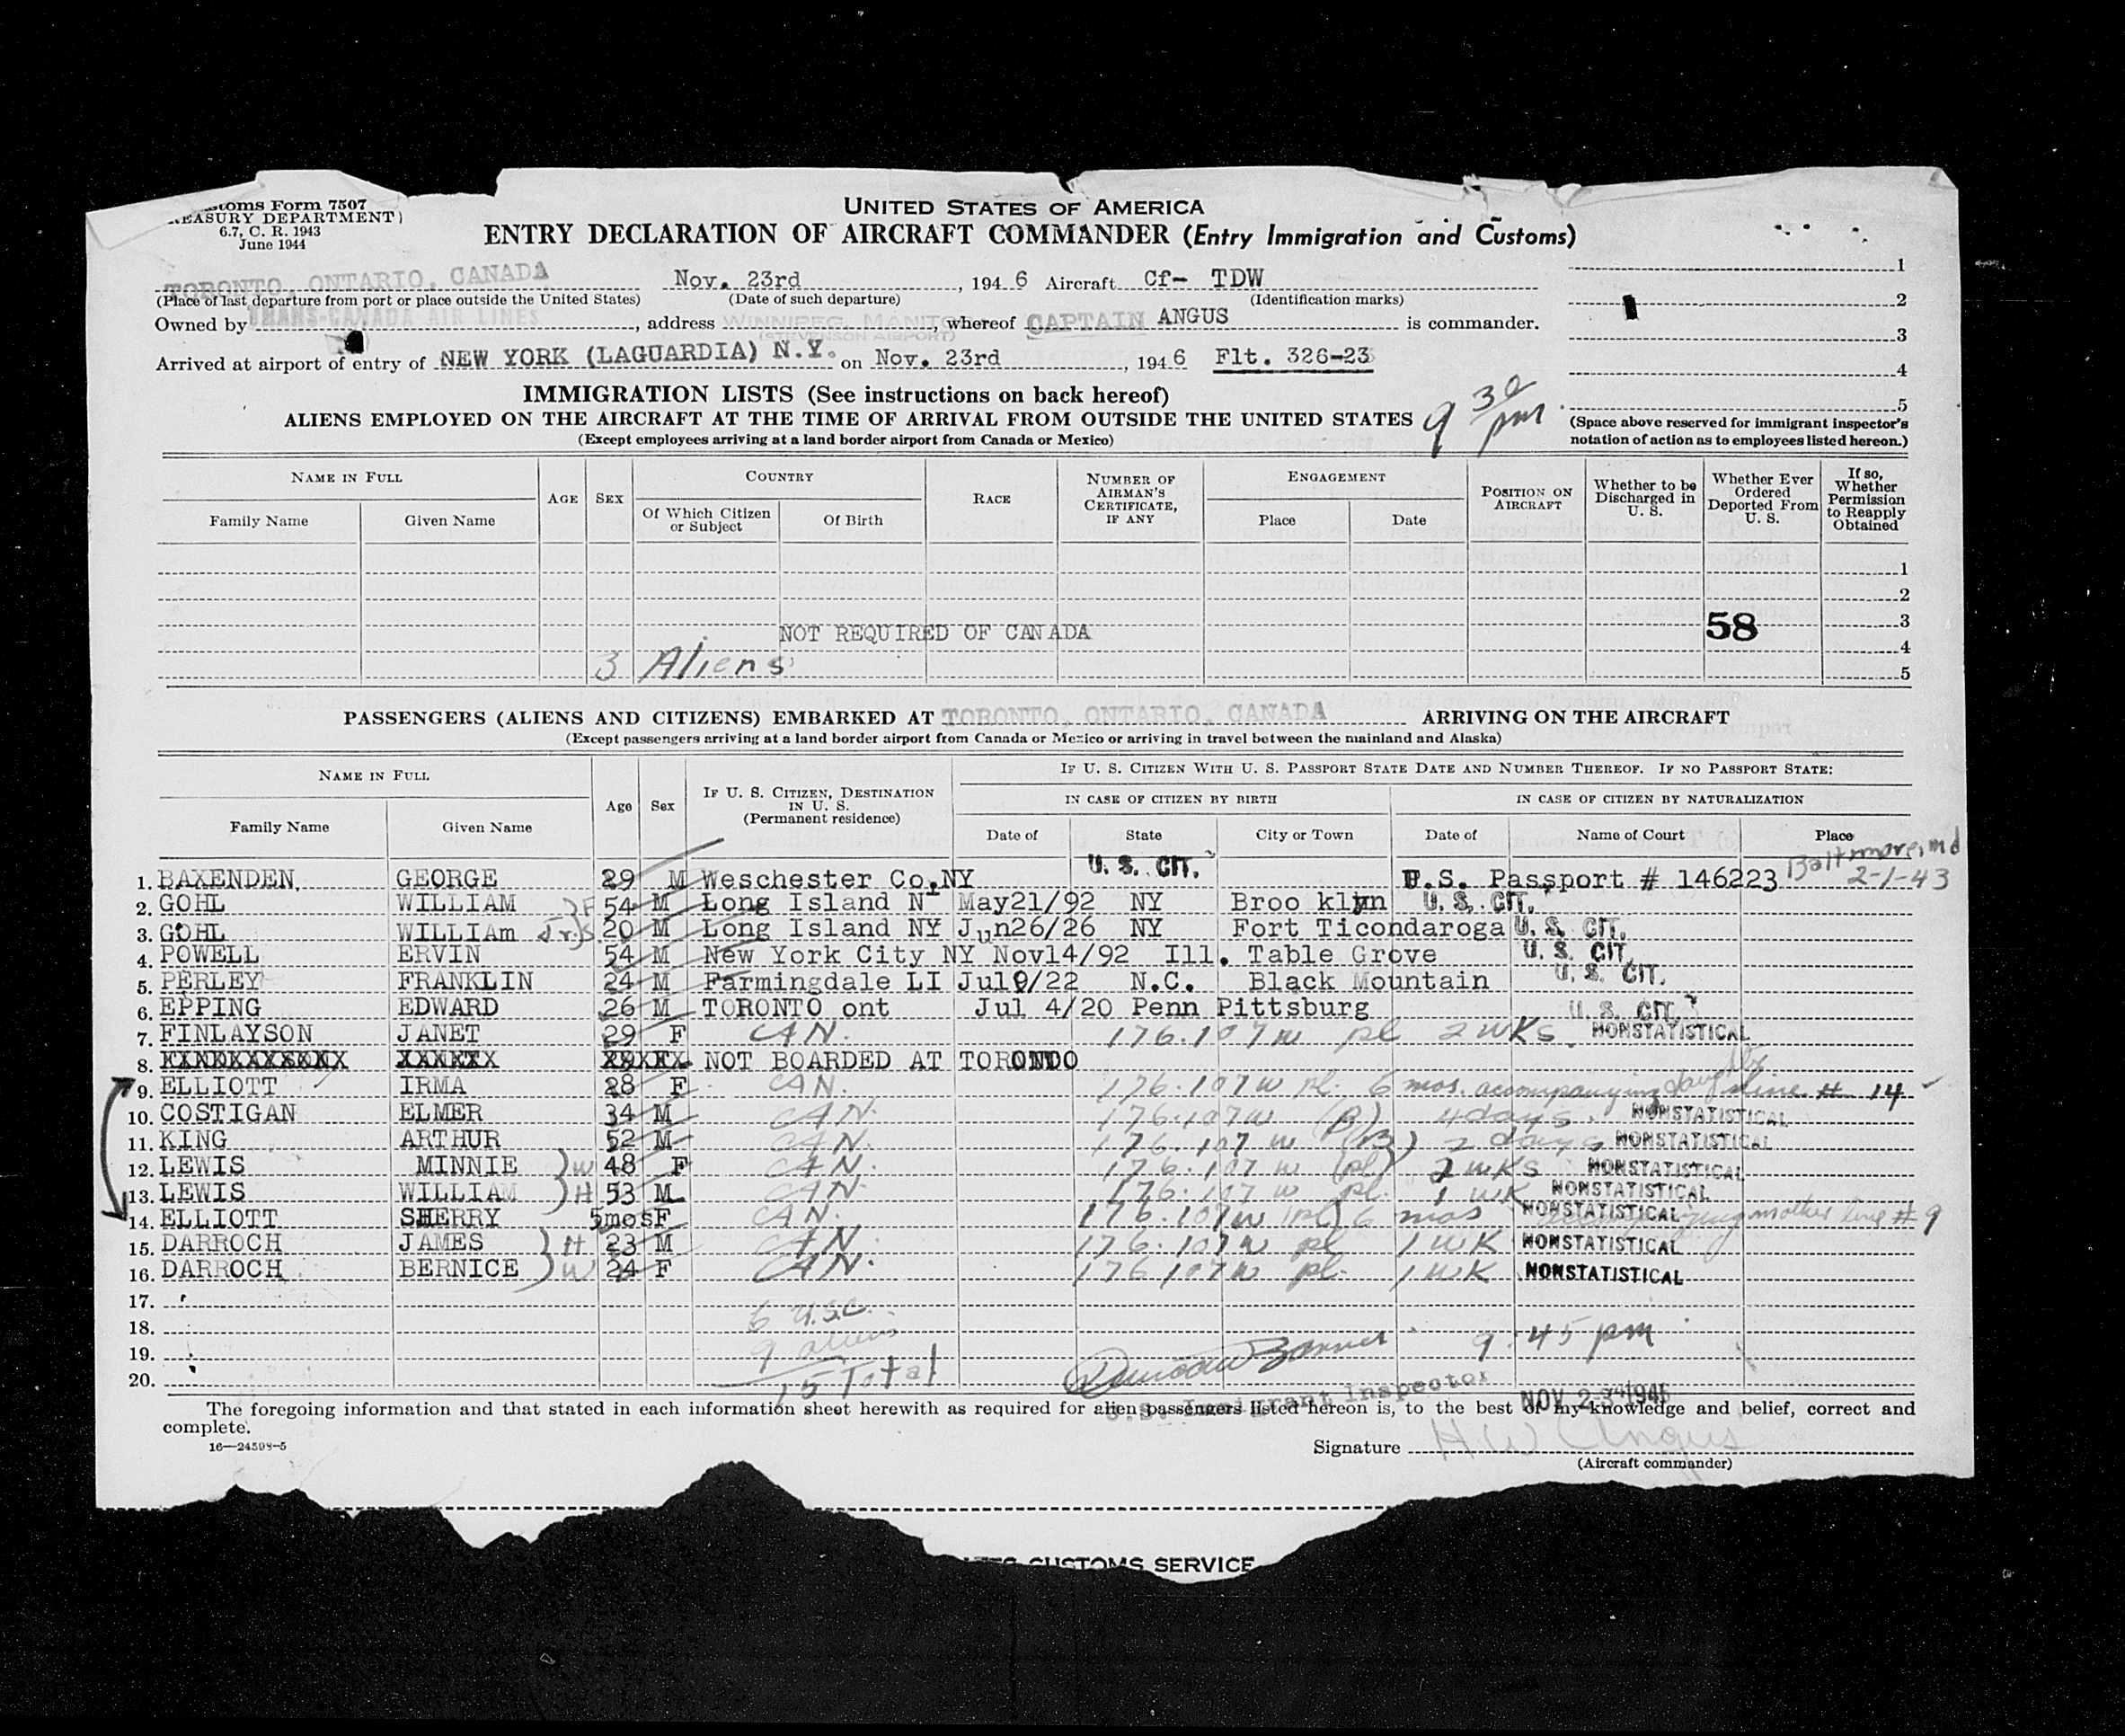 toms Form 7507
EASURY DEPARTMENT)
6.7, C. R. 1943
June 1944
UNITED STATES OF AMERICA
ENTRY DECLARATION OF AIRCRAFT COMMANDER (Entry Immigration and Customs)
TORONTO, ONTARIO, CANADA Nov. 23rd , 194 6 Aircraft Cf- TDW 1
(Place of last departure from port or place outside the United States) (Date of such departure) (Identification marks) 2
Owned by TRANS-CANADA AIR LINES , address WINNIPEG, MANITOBA (STEVENSON AIRPORT) , whereof CAPTAIN ANGUS is commander. 3
Arrived at airport of entry of NEW YORK (LAGUARDIA) N.Y. on Nov. 23rd , 194 6 Flt. 326-23 4
IMMIGRATION LISTS (See instructions on back hereof) 5
ALIENS EMPLOYED ON THE AIRCRAFT AT THE TIME OF ARRIVAL FROM OUTSIDE THE UNITED STATES 9 30 pm
(Space above reserved for immigrant inspector's notation of action as to employees listed hereon.)
(Except employees arriving at a land border airport from Canada or Mexico)
NAME IN FULL AGE SEX COUNTRY RACE NUMBER OF AIRMAN'S CERTIFICATE, IF ANY ENGAGEMENT POSITION ON AIRCRAFT Whether to be Discharged in U. S. Whether Ever Ordered Deported From U. S. If so, Whether Permission to Reapply Obtained
Family Name Given Name Of Which Citizen or Subject Of Birth Place Date
1
2
NOT REQUIRED OF CANADA 58 3
4
3 Aliens 5
PASSENGERS (ALIENS AND CITIZENS) EMBARKED AT TORONTO, ONTARIO, CANADA ARRIVING ON THE AIRCRAFT
(Except passengers arriving at a land border airport from Canada or Mexico or arriving in travel between the mainland and Alaska)
NAME IN FULL Age Sex IF U. S. CITIZEN, DESTINATION IN U. S. (Permanent residence) IF U. S. CITIZEN WITH U. S. PASSPORT STATE DATE AND NUMBER THEREOF. IF NO PASSPORT STATE:
IN CASE OF CITIZEN BY BIRTH IN CASE OF CITIZEN BY NATURALIZATION
Family Name Given Name Date of State City or Town Date of Name of Court Place
1. BAXENDEN, GEORGE 29 M Weschester Co,NY U. S. CIT. U.S. Passport # 146223 Baltimore, Md 2-1-43
2. GOHL WILLIAM F 54 M Long Island N May21/92 NY Broo klyn U. S. CIT.
3. GOHL WILLIAm Jr. S 20 M Long Island NY Jun26/26 NY Fort Ticondaroga U. S. CIT.
4. POWELL ERVIN 54 M New York City NY Nov14/92 Ill. Table Grove U. S. CIT.
5. PERLEY FRANKLIN 24 M Farmingdale LI Jul9/22 N.C. Black Mountain U. S. CIT.
6. EPPING EDWARD 26 M TORONTO ont Jul 4/20 Penn Pittsburg U. S. CIT.
7. FINLAYSON JANET 29 F CAN. 176.107w pl 2 wks. NONSTATISTICAL
8. NOT BOARDED AT TORONTO
9. ELLIOTT IRMA 28 F CAN. 176.107w pl. 6 mos. accompanying daughter line # 14
10. COSTIGAN ELMER 34 M CAN. 176.107w (B) 4 days. NONSTATISTICAL
11. KING ARTHUR 52 M CAN. 176.107w (B) 2 days NONSTATISTICAL
12. LEWIS MINNIE W 48 F CAN. 176.107w (pl) 2 wks NONSTATISTICAL
13. LEWIS WILLIAM H 53 M CAN. 176.107w pl. 1 wk NONSTATISTICAL
14. ELLIOTT SHERRY 5mos F CAN. 176.107w (pl) 6 mos NONSTATISTICAL accompanying mother line # 9
15. DARROCH JAMES H 23 M CAN. 176.107w pl 1 WK NONSTATISTICAL
16. DARROCH BERNICE W 24 F CAN. 176 107w pl. 1 WK NONSTATISTICAL
17.
18. 6 U.S.C.
19. 9 aliens 9:45 pm
20. 15 Total
U.S. Immigrant Inspector NOV 23 1946
The foregoing information and that stated in each information sheet herewith as required for alien passengers listed hereon is, to the best of my knowledge and belief, correct and
complete.
16—24598-5
Signature H W Angus
(Aircraft commander)
CUSTOMS SERVICE